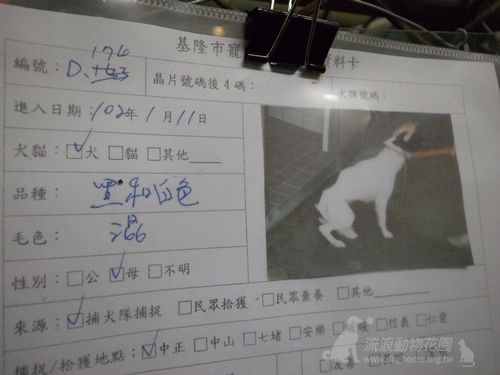 基隆市寵 資料卡
編號：D. 174
晶片號碼後4碼：
犬牌號碼：
進入日期：102年1月11日
犬貓：☑犬 □貓 □其他
品種：黑和白色
毛色：混
性別：□公 ☑母 □不明
來源：☑捕犬隊捕捉 □民眾拾獲 □民眾棄養 □其他
捕捉/拾獲地點：☑中正 □中山 □七堵 □安樂 □暖暖 □信義 □仁愛
□友善
流浪動物花園
www.doghome.org.tw